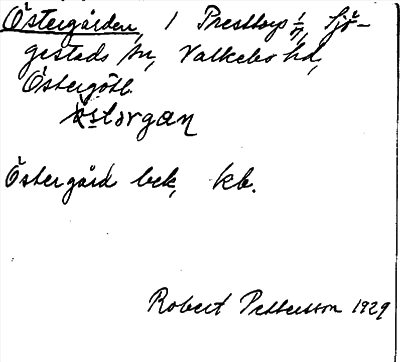 Östergården, 1 Presttorp 1/1, Sjö-
gestads sn, Valkebo hd,
Östergötl.
östərgan
Östergård bek, kb.
Robert Pettersson 1929